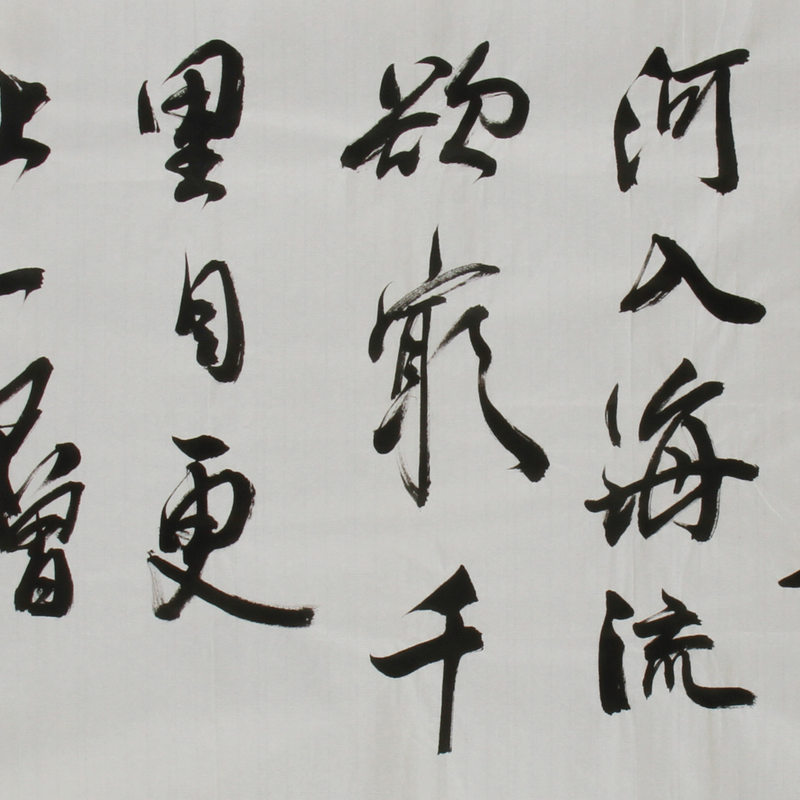 河入海流
欲窮千
里目更
上一層